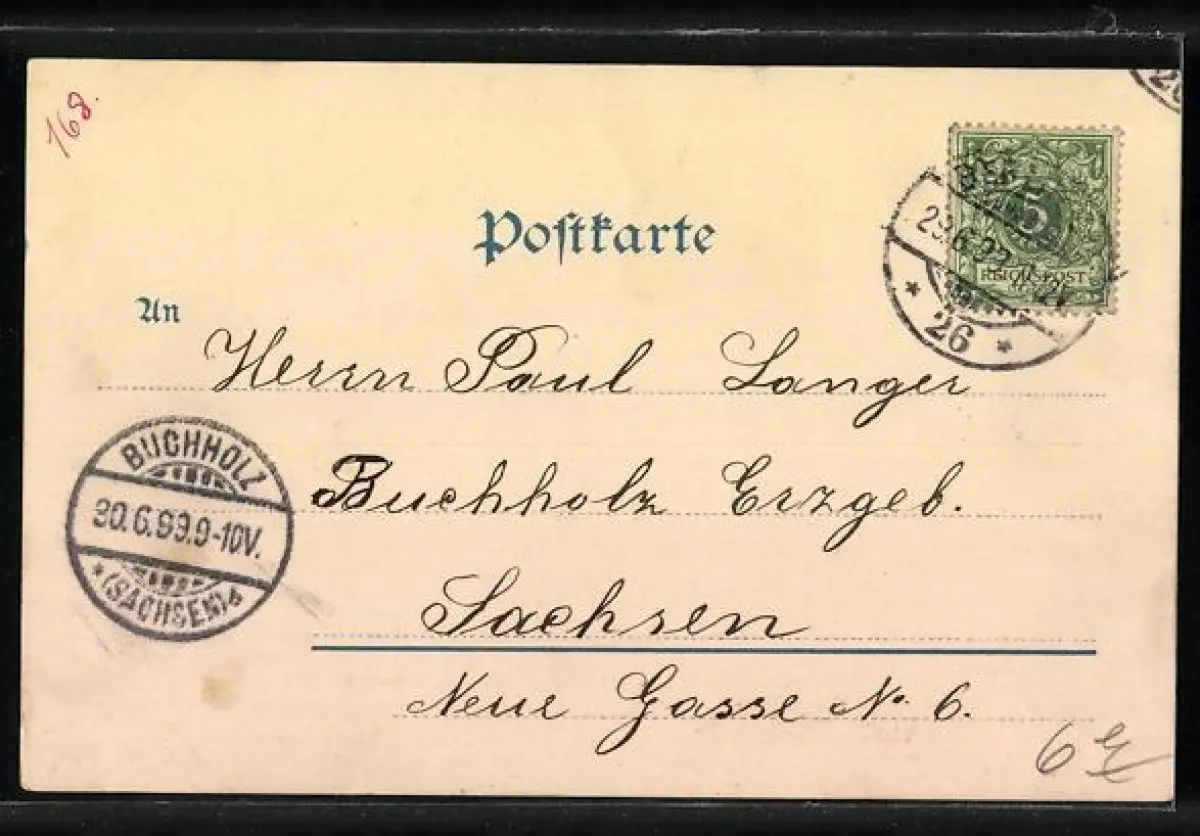 168.
Postkarte
5
REICHSPOST
29.6.99
* 26 *
An
Herrn Paul Langer
BUCHHOLZ
30.6.99.9-10V.
*(SACHSEN)d
Buchholz Erzgeb.
Sachsen
Neue Gasse N. 6.
6